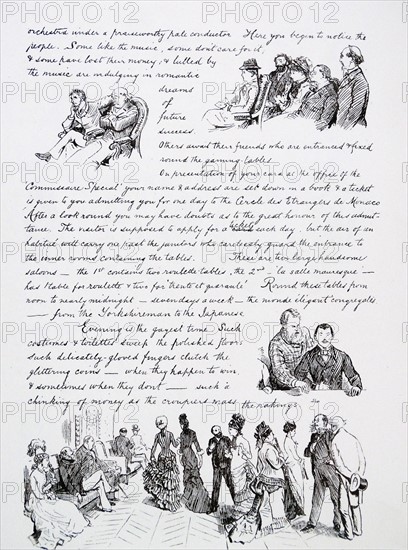 orchestra under a praiseworthy pale conductor. Here you begin to notice the
people. Some like the music, some don't care for it,
& some have lost their money; & lulled by
the music are indulging in romantic
dreams
of
future
success.
Others await their friends who are entranced & fixed
round the gaming tables.
On presentation of your card at the office of the
Commissaire Special your name & address are set down in a book & a ticket
is given to you admitting you for one day to the Cercle des Etrangers de Monaco
After a look round you may have doubts as to the great honour of this admit-
tance. The visitor is supposed to apply for a ticket each such day, but the air of an
habitué will carry one past the janitors who carelessly guard the entrance to
the inner rooms containing the tables. These are two large handsome
saloons — the 1st contains two roulette tables, the 2nd "la salle mauresque —
has 1 table for roulette & two for trente et quarante" Round these tables from
noon to nearly midnight — seven days a week — the monde élégant congregates
— from the Yorkshireman to the Japanese
Evening is the gayest time. Such
costumes & toilettes sweep the polished floor.
such delicately-gloved fingers clutch the
glittering coins — when they happen to win
& sometimes when they don't — such a
chinking of money as the croupiers mass the rakings.
PHOTO12